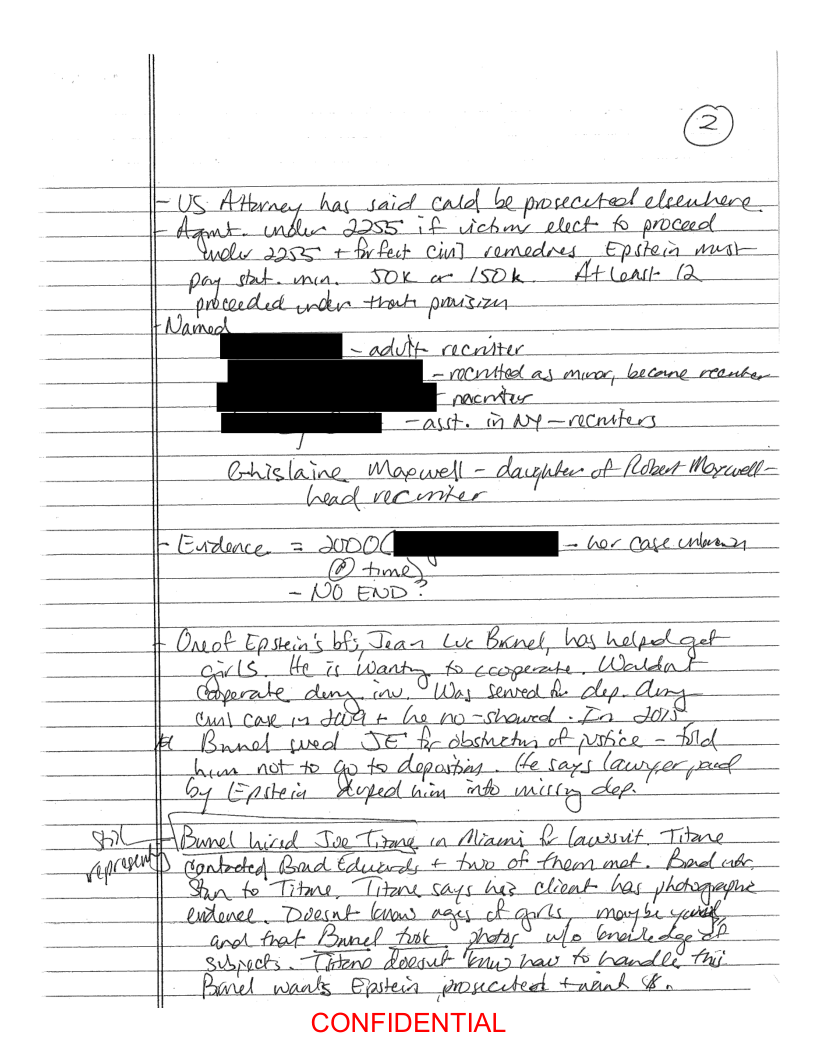 2
- US Attorney has said could be prosecuted elsewhere.
- Agmt. under 2255 if victims elect to proceed
under 2255 + forfeit civil remedies Epstein must
pay stat. min. 50K or 150k. At least 12
proceeded under that provision
- Named
- adult recruiter
- recruited as minor, became recruiter
- recruiter
- asst. in NY - recruiters
Ghislaine Maxwell - daughter of Robert Maxwell -
head recruiter
- Evidence = 2000( - her case unknown
@ time)
- NO END?
- One of Epstein's bfs, Jean Luc Brunel, has helped get
girls. He is wanting to cooperate. Wouldn't
cooperate during inv. Was served for dep. during
civil case in 2009 + he no-showed. In 2015,
Brunel sued JE for obstruction of justice - told
him not to go to deposition. He says lawyer paid
by Epstein duped him into missing dep.
still
represents
- Brunel hired Joe Titone in Miami for lawsuit. Titone
contacted Brad Edwards + two of them met. Brad
Stan to Titone. Titone says his client has photographic
evidence. Doesn't know ages of girls, maybe young,
and that Brunel took photos w/o knowledge of
subjects. Titone doesn't know how to handle this
Brunel wants Epstein prosecuted + $.
CONFIDENTIAL